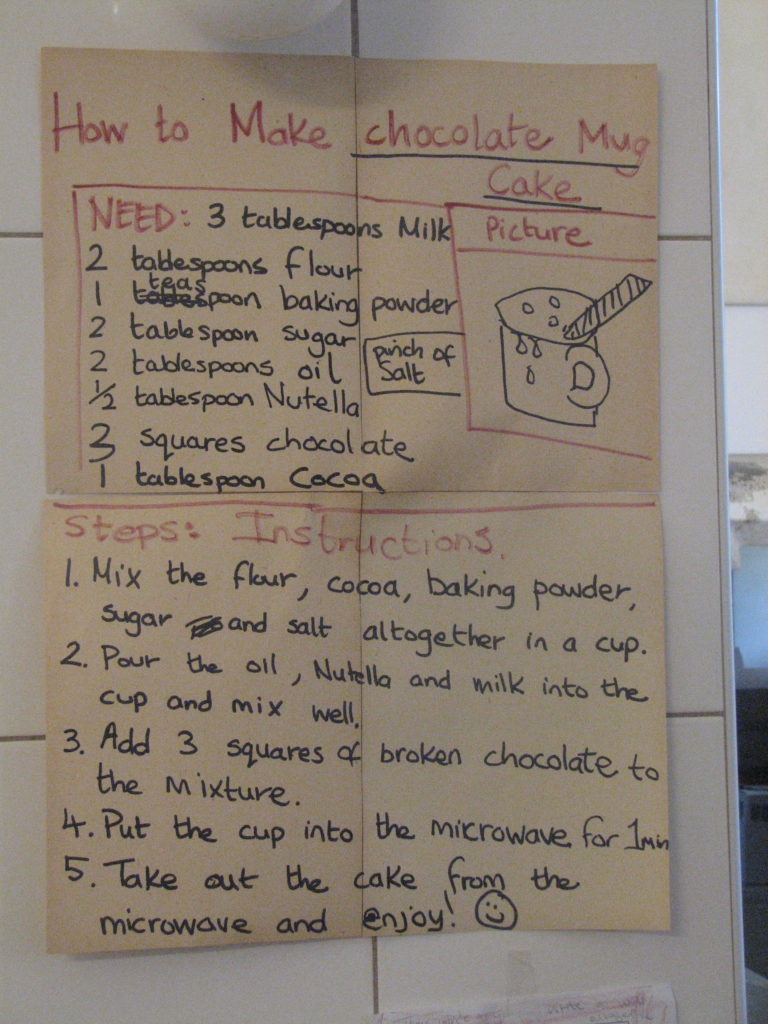 How to Make chocolate Mug
Cake
NEED: 3 tablespoons Milk
Picture
2 tablespoons flour
1 teaspoon baking powder
2 tablespoon sugar
2 tablespoons oil
pinch of
Salt
1/2 tablespoon Nutella
3 squares chocolate
1 tablespoon Cocoa
Steps: Instructions.
1. Mix the flour, cocoa, baking powder,
sugar and salt altogether in a cup.
2. Pour the oil, Nutella and milk into the
cup and mix well.
3. Add 3 squares of broken chocolate to
the mixture.
4. Put the cup into the microwave for 1min
5. Take out the cake from the
microwave and enjoy!